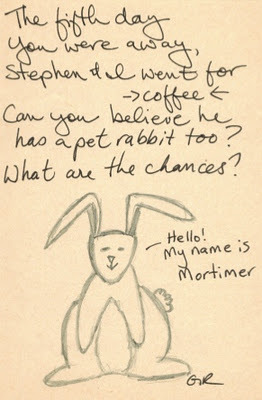 The fifth day
you were away,
Stephen & I went for
→coffee←
Can you believe he
has a pet rabbit too?
What are the chances?
Hello!
My name is
Mortimer
GR